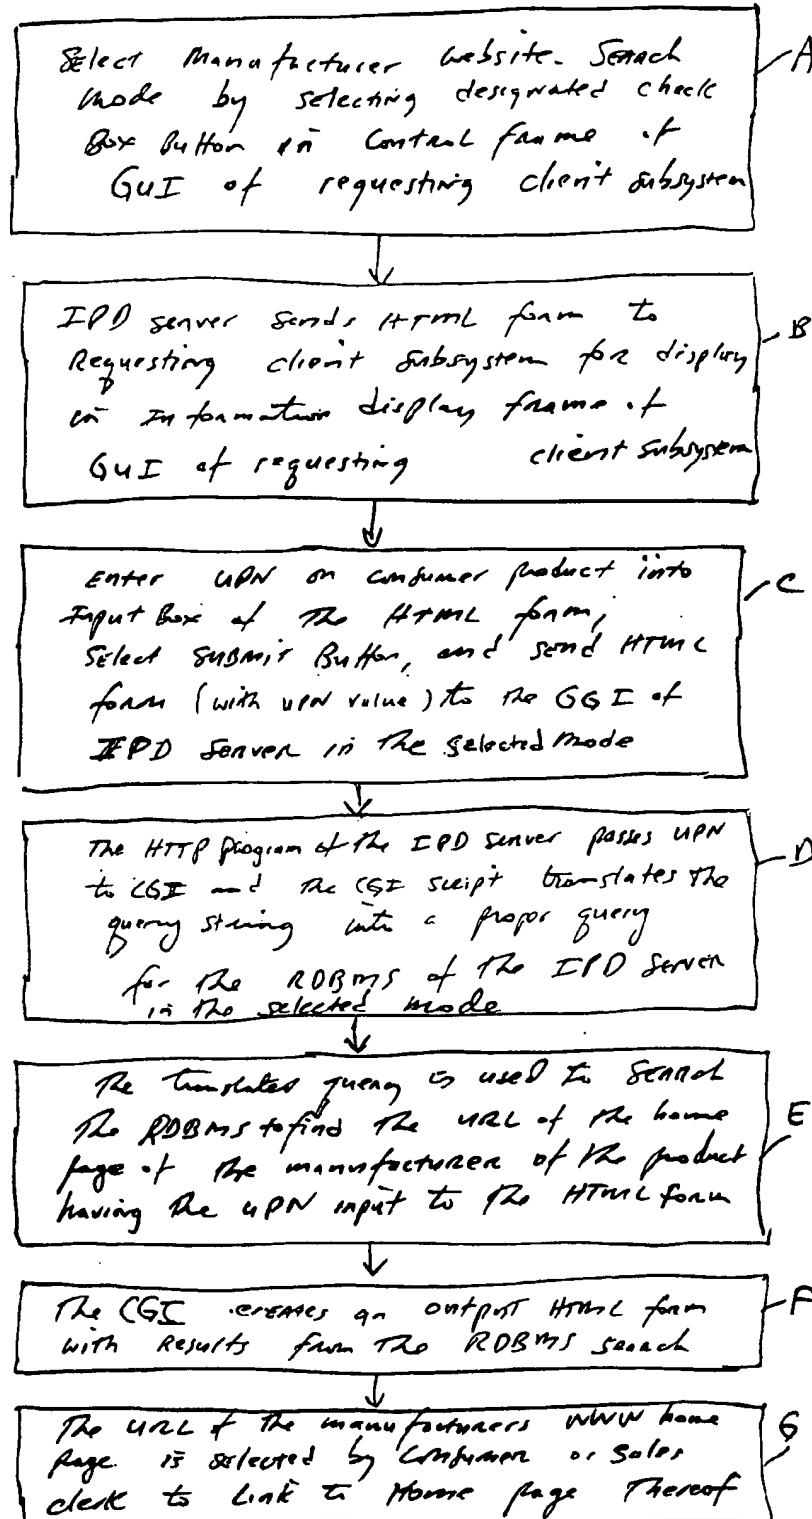 Select Manufacturer Website Search A
mode by selecting designated check
Box Button in Control frame of
GUI of requesting client subsystem
IPD server sends HTML form to B
Requesting client subsystem for display
in Information display frame of
GUI of requesting client subsystem
Enter UPN on consumer product into C
Input Box of the HTML form,
Select SUBMIT Button, and send HTML
form (with UPN value) to the GGI of
IPD Server in the selected mode
The HTTP program of the IPD Server passes UPN D
to CGI and the CGI script translates the
query string into a proper query
for the RDBMS of the IPD Server
in the selected mode
The translated query is used to search
the RDBMS to find the URL of the home E
page of the manufacturer of the product
having the UPN input to the HTML form
The CGI creates an output HTML form F
with Results from the RDBMS search
The URL of the manufacturers WWW home G
page is selected by Consumer or Sales
clerk to Link to Home page Thereof